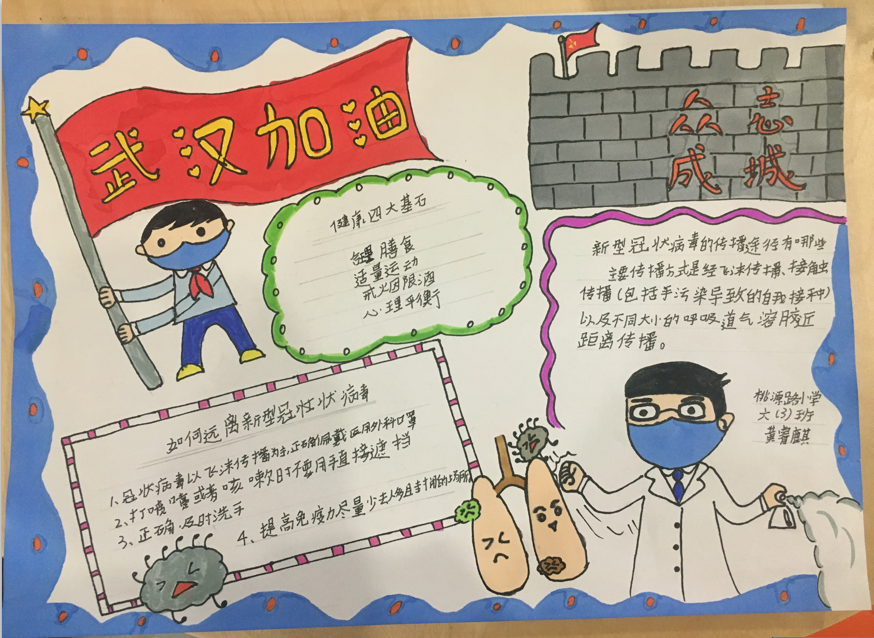 武汉加油
众志
成城
健康四大基石
合理膳食
适量运动
戒火因限酒
心理平衡
新型冠状病毒的传播途径有哪些
主要传播方式是经飞沫传播、接触
传播(包括手污染导致的自我接种)
以及不同大小的呼吸道气溶胶近
距离传播。
桃源路小学
六(3)班
黄睿麒
如何远离新型冠状状病毒
1、冠状病毒以飞沫传播为主,正确佩戴医用外科口罩
2、打喷嚏或者咳嗽时不要用手直接遮挡
3、正确、及时洗手
4、提高免疫力尽量少去人多且封闭的场所